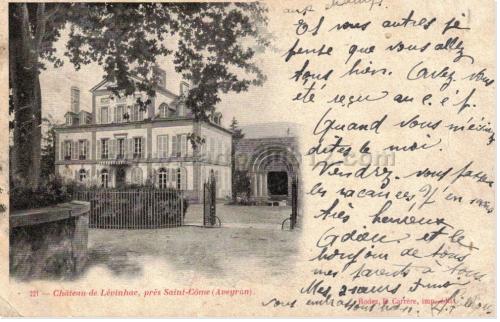 aux champs.
Et vous autres je
pense que vous allez
tous bien. Avez vous
été reçu au c. é. p.
Quand vous m'écrirez
dites le moi.
Viendrez-vous passer
les vacances ? J'en serais
très heureux
Adieu et le
bonjour de tous
mes parents à tous
Mes sœurs
vous embrassons bien
221 - Château de Lévinhac, près Saint-Côme (Aveyron).
Rodez, E. Carrère, imp.-édit.